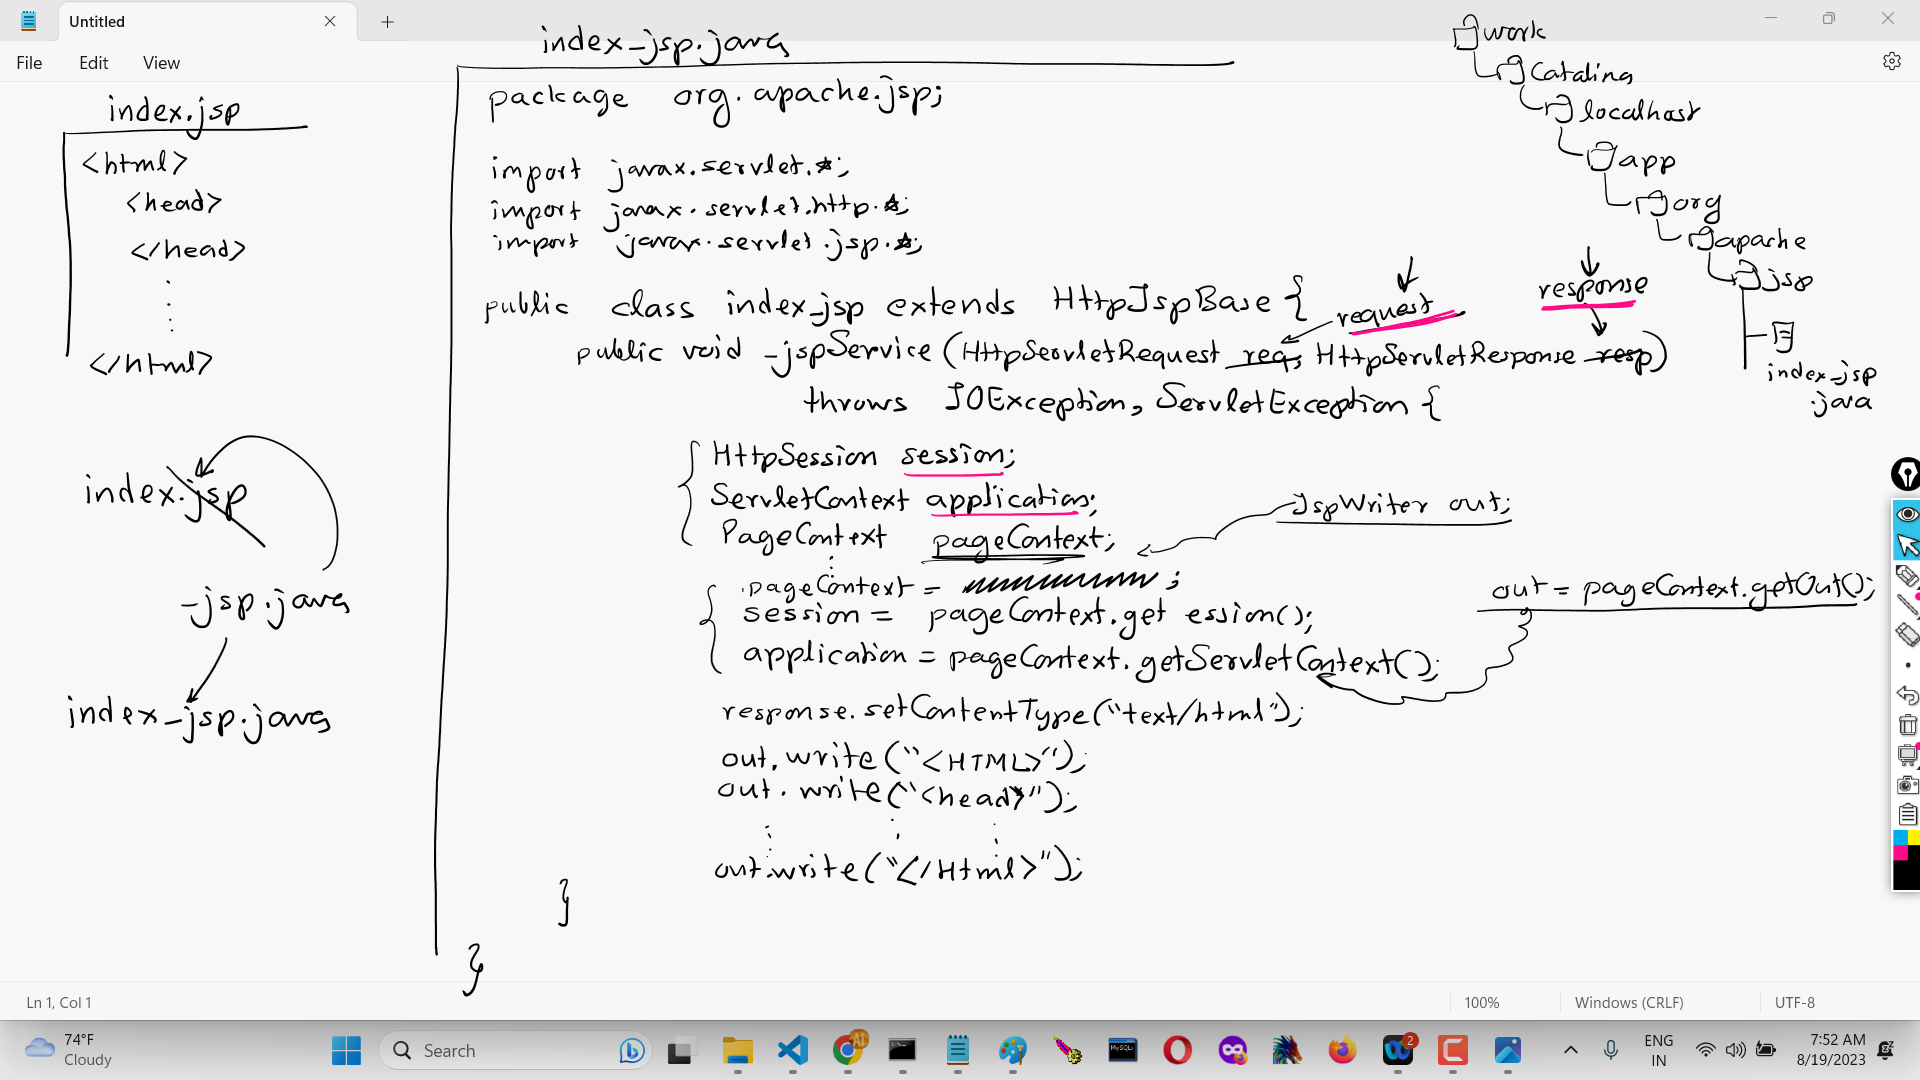 Untitled
File Edit View
index.jsp
<html>
<head>
</head>
</html>
index.jsp
_jsp.java
index_jsp.java
index_jsp.java
package org.apache.jsp;
import javax.servlet.*;
import javax.servlet.http.*;
import javax.servlet.jsp.*;
public class index_jsp extends HttpJspBase {
request
response
public void _jspService(HttpServletRequest req, HttpServletResponse resp)
throws IOException, ServletException {
HttpSession session;
ServletContext application;
PageContext pageContext;
JspWriter out;
pageContext = ;
session = pageContext.get ession();
application = pageContext.getServletContext();
out = pageContext.getOut();
response.setContentType("text/html");
out.write("<HTML>");
out.write("<head>");
out.write("</Html>");
}
}
work
Catalina
localhost
app
org
apache
jsp
index_jsp
.java
Ln 1, Col 1
100%
Windows (CRLF)
UTF-8
74°F
Cloudy
Search
MySQL
2
ENG
IN
7:52 AM
8/19/2023